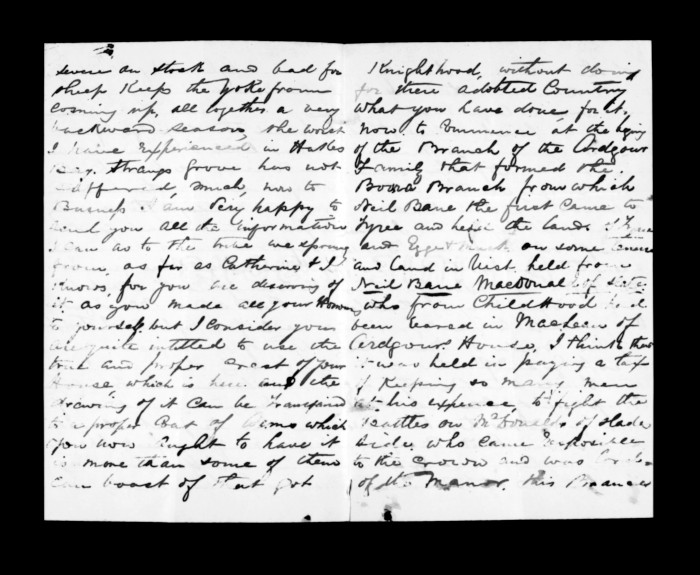 severe on stock and bad for
sheep Keeps the Yoke from
Coming up, all together a very
backward season, the worst
I have Experienced in Hakes
Bay. Strangs Grove has not
suffered, much, now to
Buisness I am Very happy to
send you all the information
I can as to the tribe we sprung
from, as far as Catherine & I
Knows, for you are desering of
it as you made all your Honours
to yourself, but I consider your
are quite intitled to use the
true and proper Crest of your
House, which is here and the
drawing of it Can be Transfered
to a proper Coat of Arms which
you now Aught to have it
is more than some of them
can boast of that got
Knighthood, without doing
for there adobted Country
what you have done for it.
Now to Commence at the
of the Branch of the Ardgour
Family that formed the
Branch from which
Neil Bane the first Came to
Tyree and heild the lands of Tyree
and Egge on some
and land in Uist. held from
Neil Bane Macdonal of slate
who from ChildHood had
been reared in Maclean of
Ardgour. House, I think that
it was held in paying a tax
of Keeping so many men
at his expence to fight the
Battles on McDonalds of slade
side, who Came
to the Crown and was
of the Manor. this